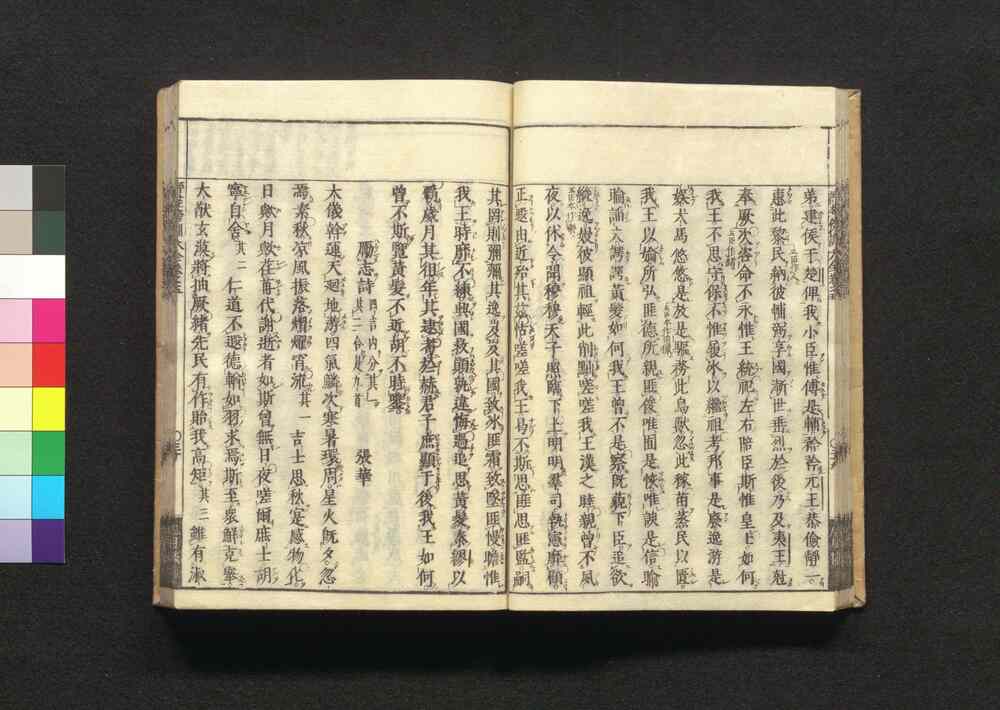 弟建侯于楚俾我小臣惟傅是輔矜矜元王恭儉靜一
惠此黎民納彼輔弼享國漸世垂烈於後乃及夷王剋
奉厥次咨命不永惟王統祀左右陪臣斯惟皇士如何
我王不思守保不惟履冰以繼祖考邦事是廢逸游是
娛犬馬悠悠是放是驅務此鳥獸忽此稼苗蒸民以匱
我王以媮所弘匪德所親匪俊唯囿是恢唯諛是信
諂夫諤諤黃髮如何我王曾不是察既藐下臣追欲
縱逸嫚彼顯祖輕此削黜嗟嗟我王漢之睦親曾不夙
夜以休令聞穆穆天子照臨下土明明羣司執憲靡顧
正遐由近殆其茲怙嗟嗟我王曷不斯思匪思匪監嗣
其罔則彌彌其逸岌岌其國致冰匪霜致墜匪嫚瞻惟
我王時靡不練興國救顛孰違悔過追思黃髮秦繆以
霸歲月其徂年其逮耇於赫君子庶顯于後我王如何
曾不斯覽黃髮不近胡不時鑒
勵志詩 張華
大儀斡運天迴地游四氣鱗次寒暑環周星火既夕忽
焉素秋涼風振落熠燿宵流其一 吉士思秋寔感物化
日與月與荏苒代謝逝者如斯曾無日夜嗟爾庶士胡
寧自舍其二 仁道不遐德輶如羽求焉斯至衆鮮克舉
大猷玄漠將抽厥緒先民有作貽我高矩其三 雖有淑